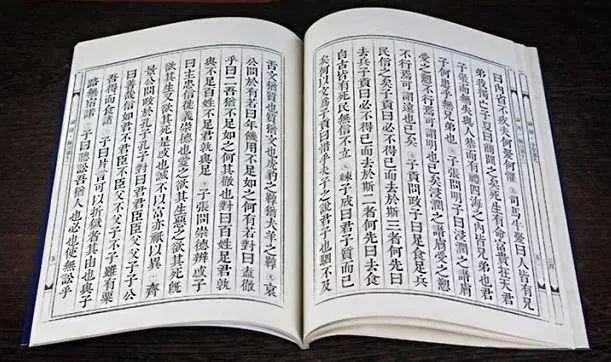 曰內省不疚夫何憂何懼 司馬牛憂曰人皆有兄
弟我獨亡子夏曰商聞之矣死生有命富貴在天君
子敬而無失與人恭而有禮四海之內皆兄弟也君
子何患乎無兄弟也 子張問明子曰浸潤之譖膚
受之愬不行焉可謂明也已矣浸潤之譖膚受之愬
不行焉可謂遠也已矣 子貢問政子曰足食足兵
民信之矣子貢曰必不得已而去於斯三者何先曰
去兵子貢曰必不得已而去於斯二者何先曰去食
自古皆有死民無信不立 棘子成曰君子質而已
矣何以文爲子貢曰惜乎夫子之說君子也駟不及
舌文猶質也質猶文也虎豹之鞟猶犬羊之鞟 哀
公問於有若曰年饑用不足如之何有若對曰盍徹
乎曰二吾猶不足如之何其徹也對曰百姓足君孰
與不足百姓不足君孰與足 子張問崇德辨惑子
曰主忠信徙義崇德也愛之欲其生惡之欲其死既
欲其生又欲其死是惑也誠不以富亦祇以異 齊
景公問政於孔子孔子對曰君君臣臣父父子子公
曰善哉信如君不君臣不臣父不父子不子雖有粟
吾得而食諸 子曰片言可以折獄者其由也與子
路無宿諾 子曰聽訟吾猶人也必也使無訟乎